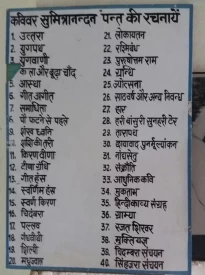 कविवर सुमित्रानन्दन पन्त की रचनायें
1. उत्तरा
2. युगपथ
3. युगवाणी
4. कला और बूढ़ा चाँद
5. आस्था
6. गीत अगीत
7. समाधिता
8. पौ फटने से पहले
9. शंख ध्वनि
10. शशि की तरी
11. किरण वीणा
12. वीणा ग्रंथि
13. गीत हंस
14. स्वर्णिम हंस
15. स्वर्ण किरण
16. चिदंबरा
17. पल्लव
18. गंधवीथी
19. शिल्पी
20. मधुज्वाल
21. लोकायतन
22. रश्मिबंध
23. पुरुषोत्तम राम
24. ग्रन्थि
25. ज्योत्सना
26. साठ वर्ष और अन्य निबन्ध
27. हार
28. हरी बाँसुरी सुनहरी टेर
29. तारापथ
30. छायावाद पुनर्मूल्यांकन
31. गीतसेतु
32. संक्रांति
33. आधुनिक कवि
34. मुक्ताभ
35. हिन्दी काव्य संग्रह
36. ग्राम्या
37. रजत शिखर
38. मुक्तियज्ञ
39. चिदम्बरा संचयन
40. सिंहवरा संचयन